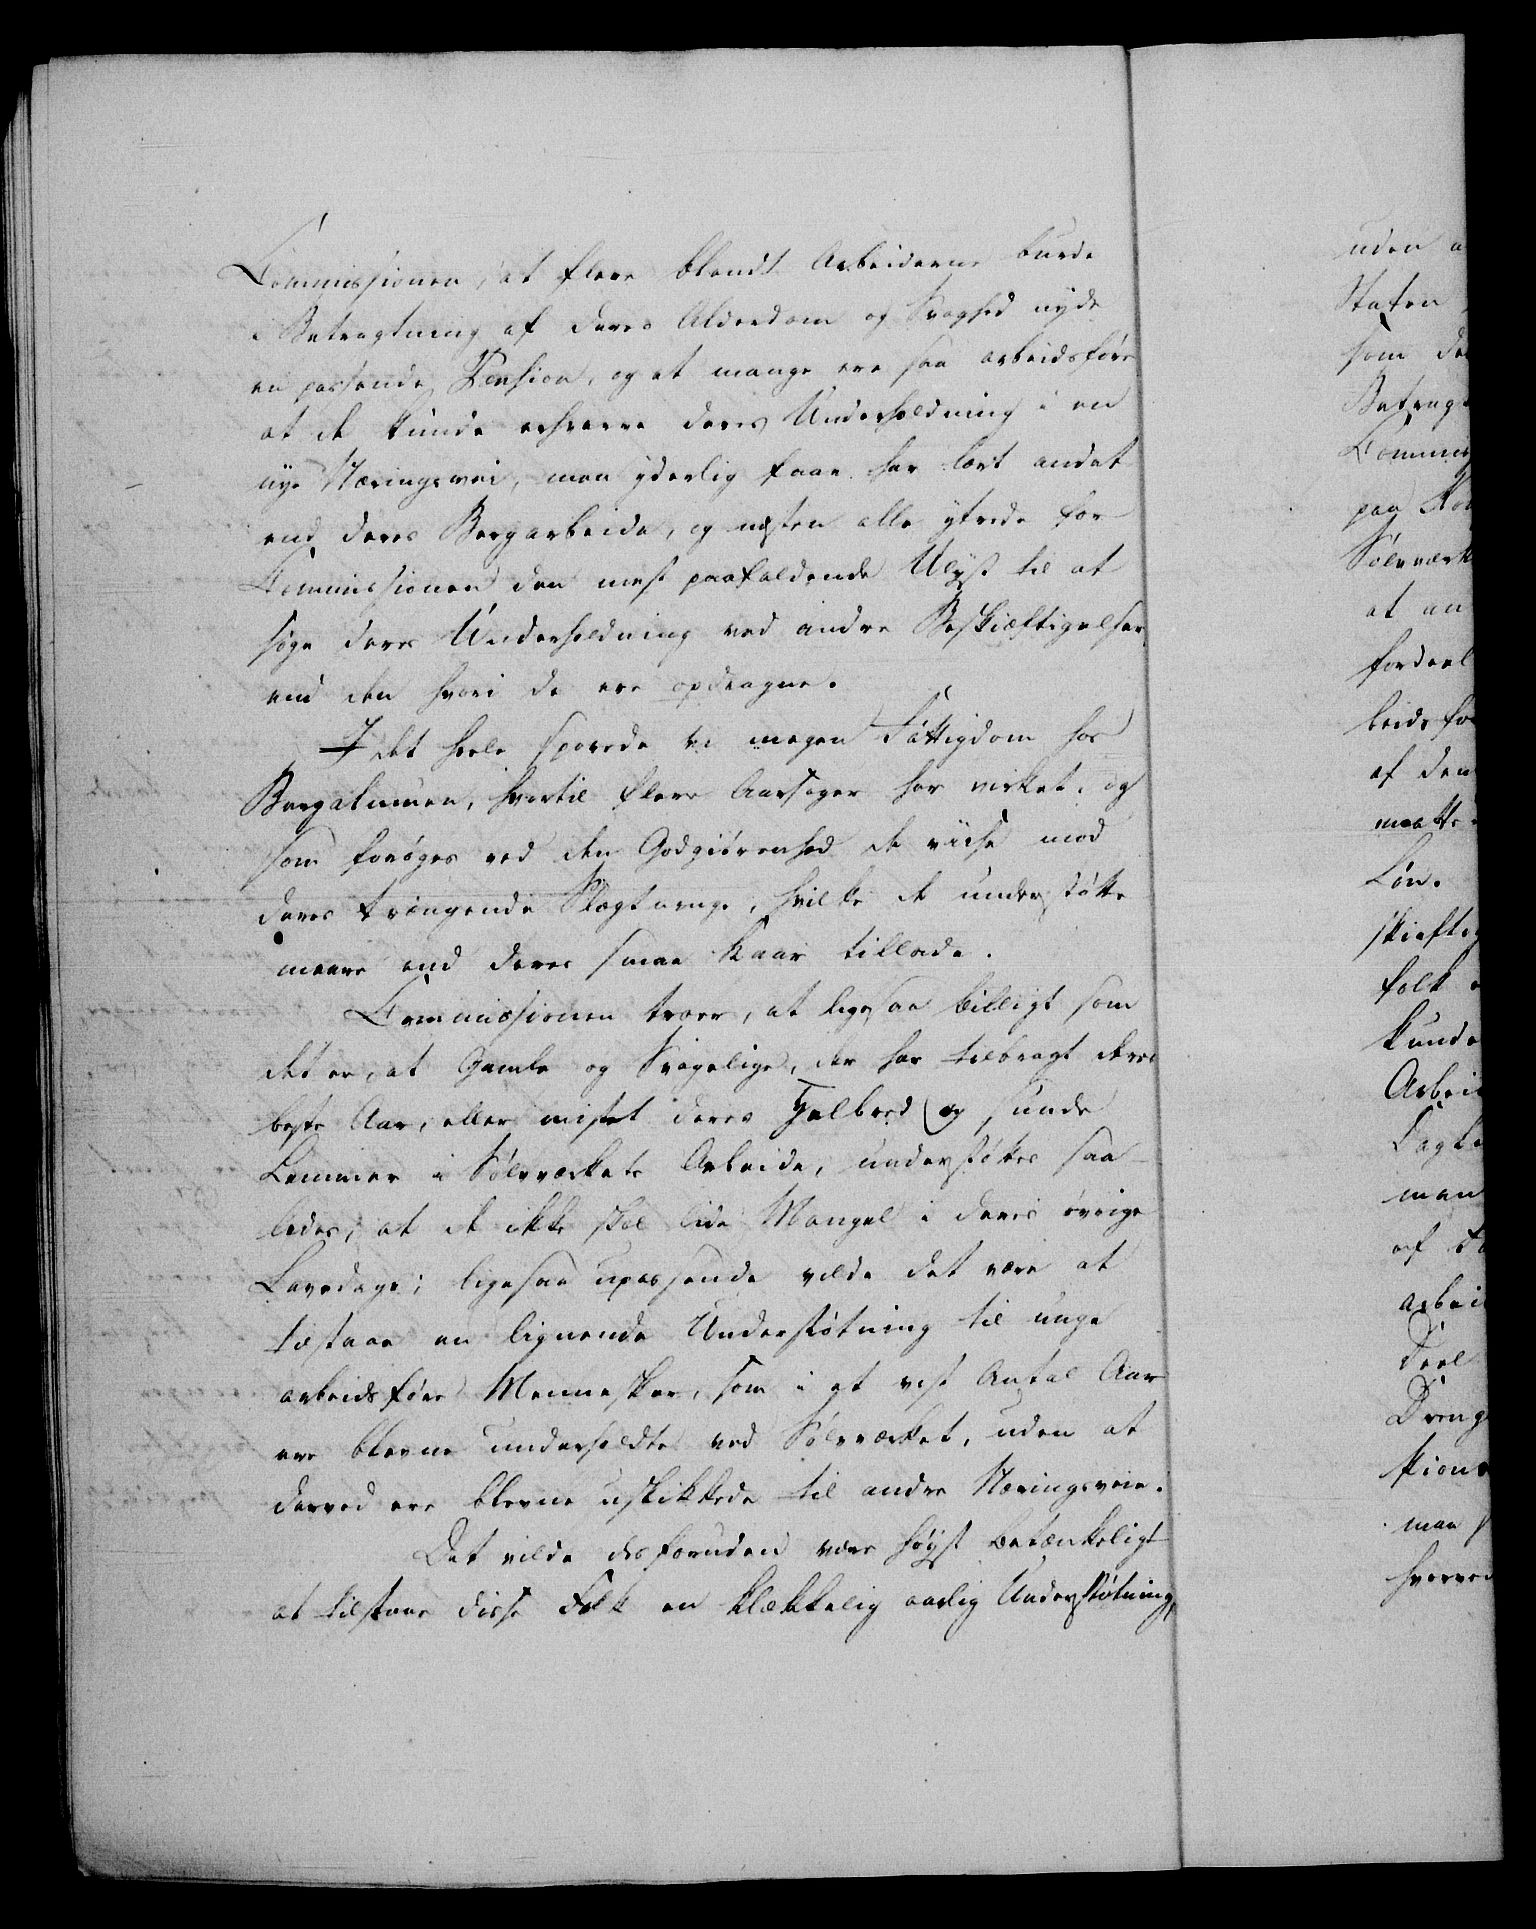 Commissionen, at flere blandt Arbeiderne burde
i Betragtning af deres Alderdom og Svaghed nyde
en passende Pension, og at mange ere saa arbeidsføre
at de kunde erhverve deres Underholdning i en
nye Næringsvei, men yderlig faae har lært andet
end deres Bergarbeide, og næsten alle yttrede for
Commissionen den mest paafaldende Ulyst til at
søge deres Underholdning ved andre Beskiæftigelser,
end den hvori de ere opdragne.
I det hele sporede vi megen Fattigdom hos
Bergalmuen, hvortil flere Aarsager har virket, og
som forøges ved den Godgiørenhed de viise mod
deres trængende Slægtninge, hvilke de understøtte
meere end deres smaa Kaar tillade.
Commissionen troer, at ligesaa billigt som
det er, at Gamle og Svagelige, der har tilbragt deres
beste Aar, eller mistet deres Helbred og sunde
Lemmer i Sølvværkets Arbeide, understøttes saa-
ledes, at de ikke skal lide Mangel i deres øvrige
Levedage; ligesaa upassende vilde det være at
tilstaae en lignende Understøtning til unge
arbeidsføre Mennesker, som i et vist Antal Aar
ere blevne underholdte ved Sølvværket, uden at
derved ere blevne uskikkede til andre Næringsveie.
Det vilde desforuden være høyst betænkeligt
at tilstaae disse Folk en klækkelig aarlig Understøtning,
uden a
Staten
som de
Betragt
Commis
paa Kon
Sølvværk
at en
fordeel
beidsfø
af den
maatte
Løn.
skiæftig
folk
kunde
Arbei
Dagle
man
af
arbei
Deel
Dreng
skiøn
man
hverve